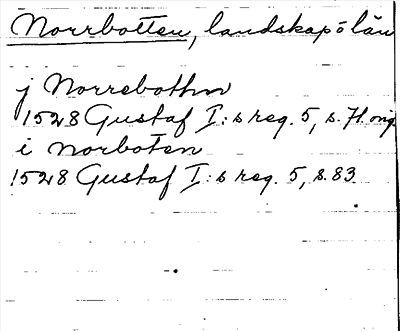 Norrbotten, landskap o län
j Norrebothn
1528 Gustaf I:s reg. 5, s. 71. orig.
i Norboten
1528 Gustaf I:s reg. 5, s. 83.